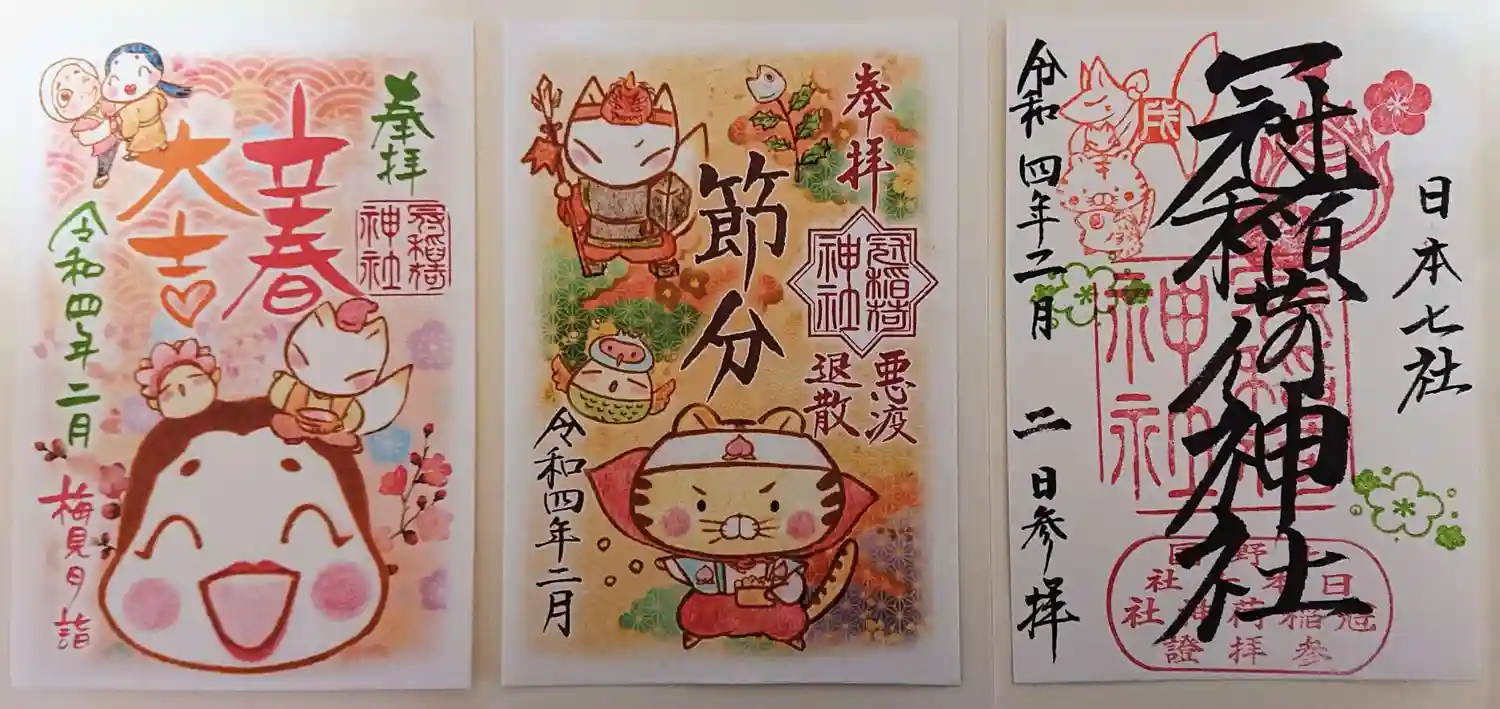 奉拝
立春
大吉
冠稲荷
神社
令和四年二月
梅見月詣
奉拝
節分
冠稲荷
神社
悪疫
退散
令和四年二月
日本七社
冠稲荷神社
令和四年二月 二日参拝
戌
神社
冠稲荷神社
参拝證